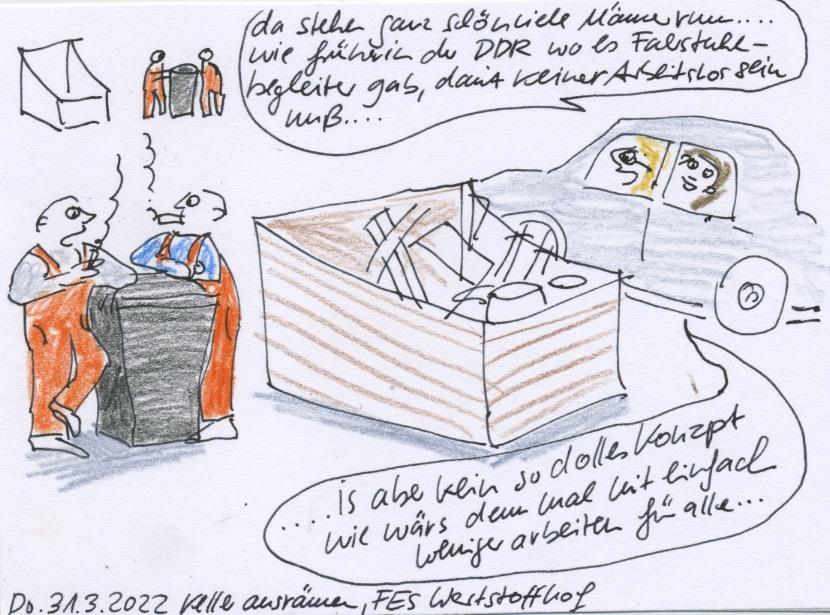 da stehen ganz schön viele Männer rum....
wie früher in der DDR wo es Fahrstuhl-
begleiter gab, damit keiner Arbeitslos sein
muß....
.... is aber kein so dolles Konzept
wie wärs denn mal mit einfach
weniger arbeiten für alle...
Do. 31.3.2022 Keller ausräumen, FES Wertstoffhof